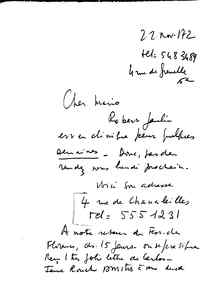 22 nov. 72
tel: 548 3489
4 rue de Grenelle
Cher Mario
Robert Jaulin
est en clinique pour quelques
semaines - Donc, pas de
rendez vous lundi prochain.
Voici son adresse
4 rue de Chanaleilles
tel = 555 1231
A notre retour de
Florence, ds. 15 jours
Reçu 1 très jolie lettre de Carlos
Jean Rouch